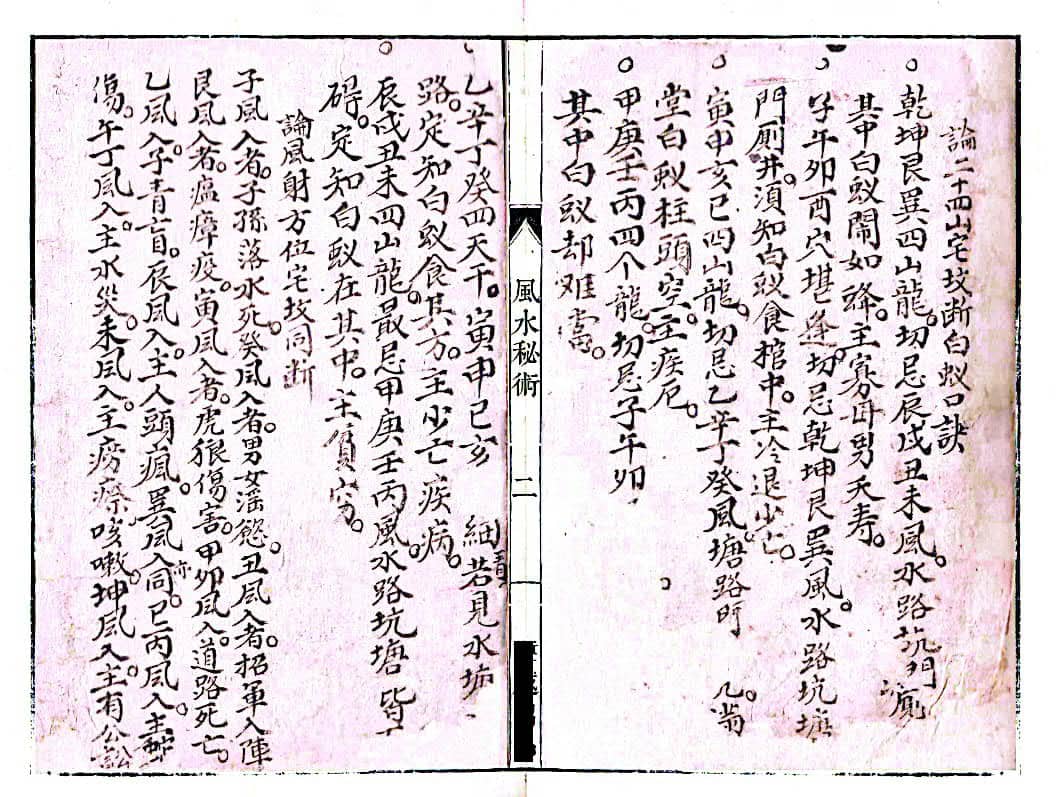 論二十四山宅坟断白蚁口訣
乾坤艮巽四山龍。切忌辰戌丑未風。水路坑門廁
其中白蚁鬧如蜂。主寡母男夭寿。
子午卯酉穴堪逢。切忌乾坤艮巽風。水路坑塘
門厕井。須知白蚁食棺中。主冷退少亡。
寅申亥巳四山龍。切忌乙辛丁癸風。塘路門
堂白蚁柱頭空。主疾厄。
甲庚壬丙四个龍。切忌子午卯
其中白蚁却难當。
風水秘術
二
乙辛丁癸四天干。寅申巳亥 細看若見水塘
路。定知白蚁食其方。主少亡疾病。
辰戌丑未四山龍。最忌甲庚壬丙風水路坑塘皆
碍。定知白蚁在其中。主貧窮。
論風射方位宅坟同断
子風入者。子孫落水死。癸風入者。男女淫慾。丑風入者招軍入陣
艮風入者。瘟瘴疫。寅風入者。虎狼傷害。甲卯風入。道路死亡。
乙風入。子青盲。辰風入。主人頭瘋。巽風入亦同。巳丙風入。主
傷。午丁風入。主水災。未風入。主痨瘵咳嗽。坤風入。主有公訟